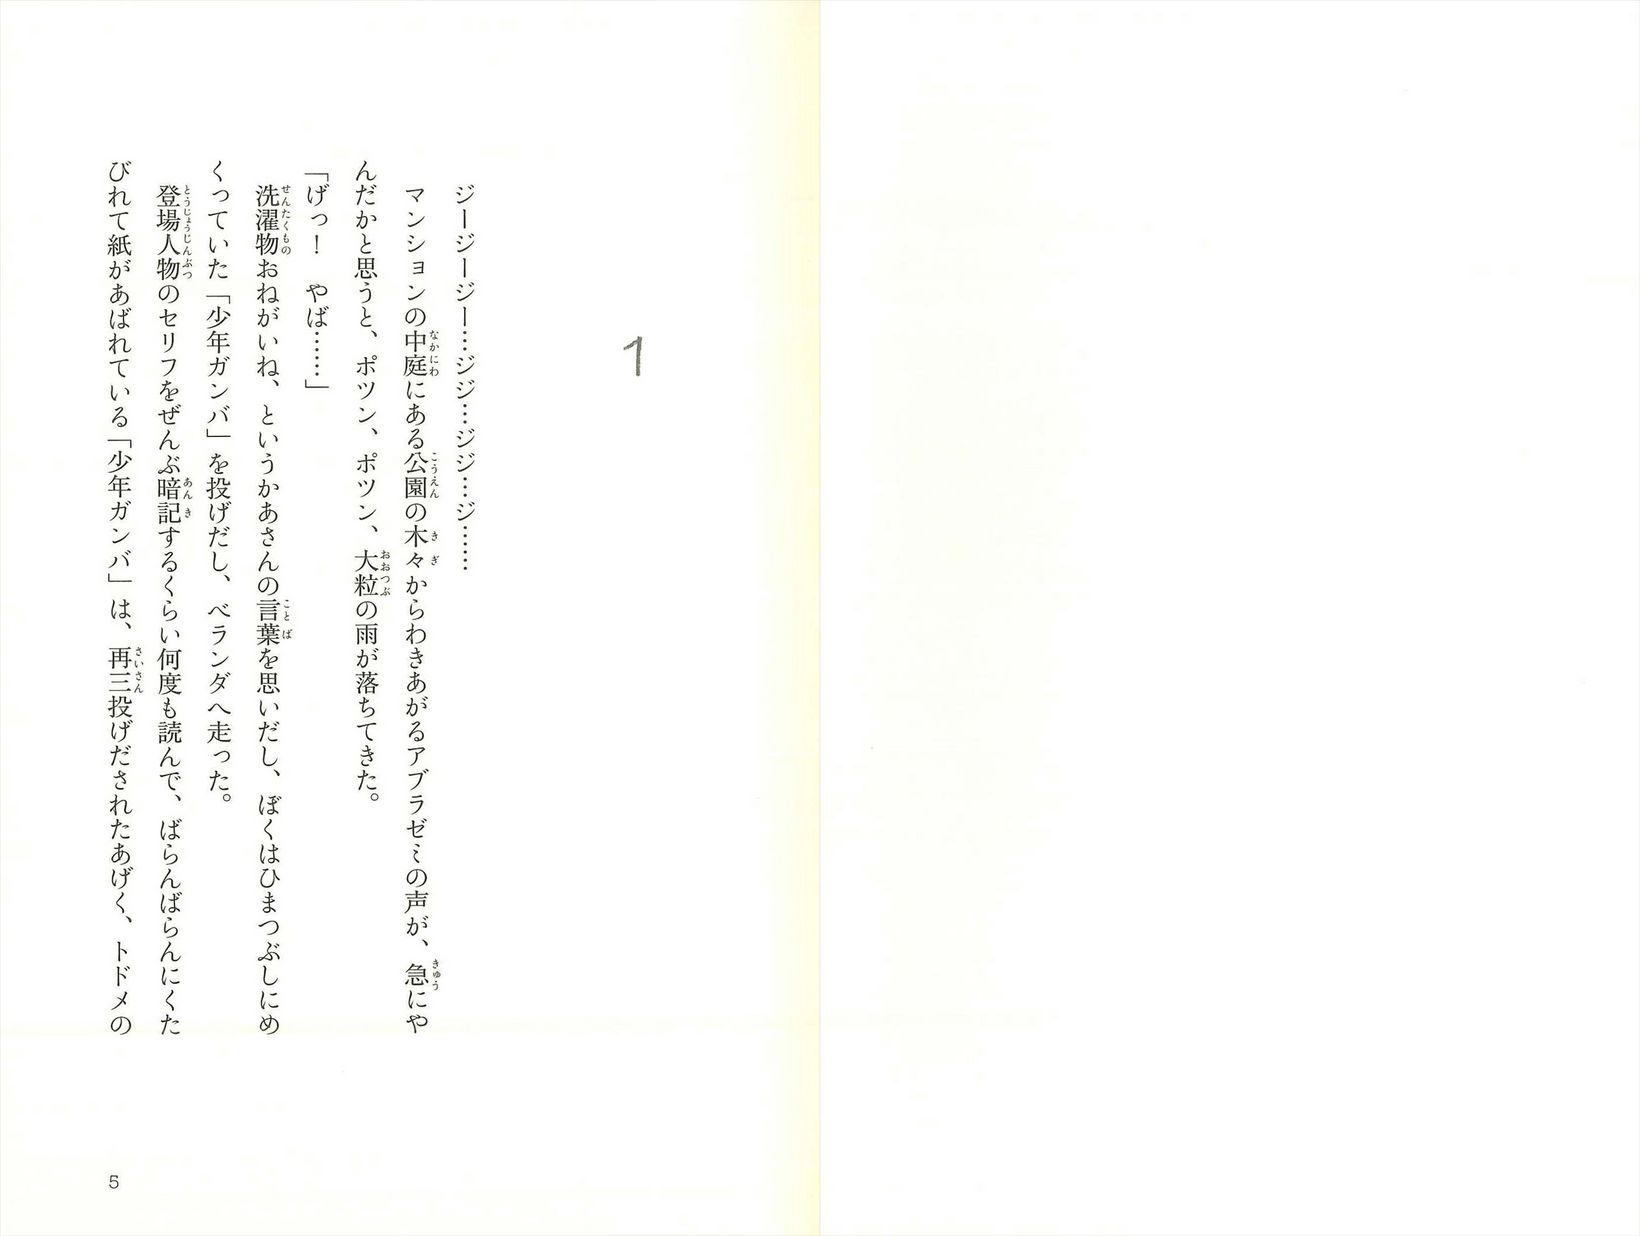 1
ジージージー…ジジ…ジジ…ジ……
マンションの中庭にある公園の木々からわきあがるアブラゼミの声が、急にや
んだかと思うと、ポツン、ポツン、大粒の雨が落ちてきた。
「げっ！　やば……」
洗濯物おねがいね、というかあさんの言葉を思いだし、ぼくはひまつぶしにめ
くっていた「少年ガンバ」を投げだし、ベランダへ走った。
登場人物のセリフをぜんぶ暗記するくらい何度も読んで、ばらんばらんにくた
びれて紙があばれている「少年ガンバ」は、再三投げだされたあげく、トドメの
5